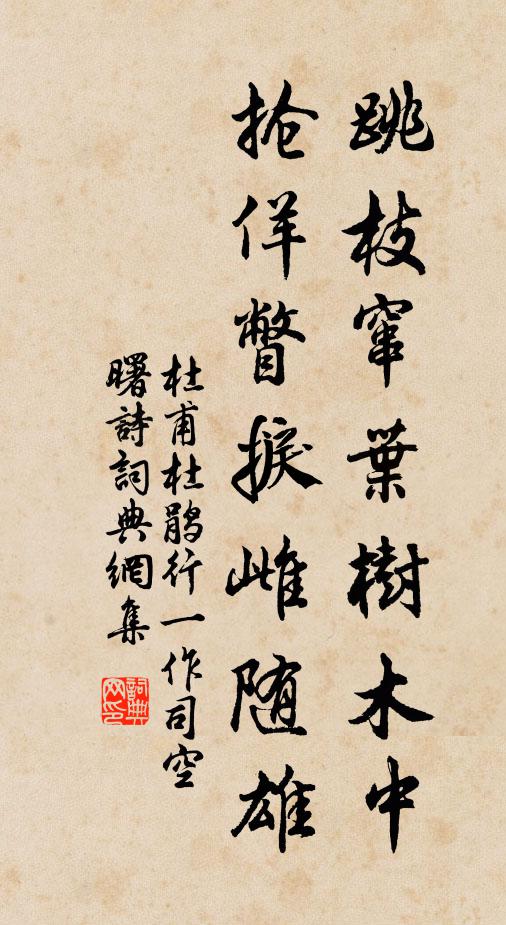 跳枝窜葉樹木中
抢佯瞥捩雌随雄
杜甫杜鹃行一作司空
曙詩詞典網集
詞典
网印